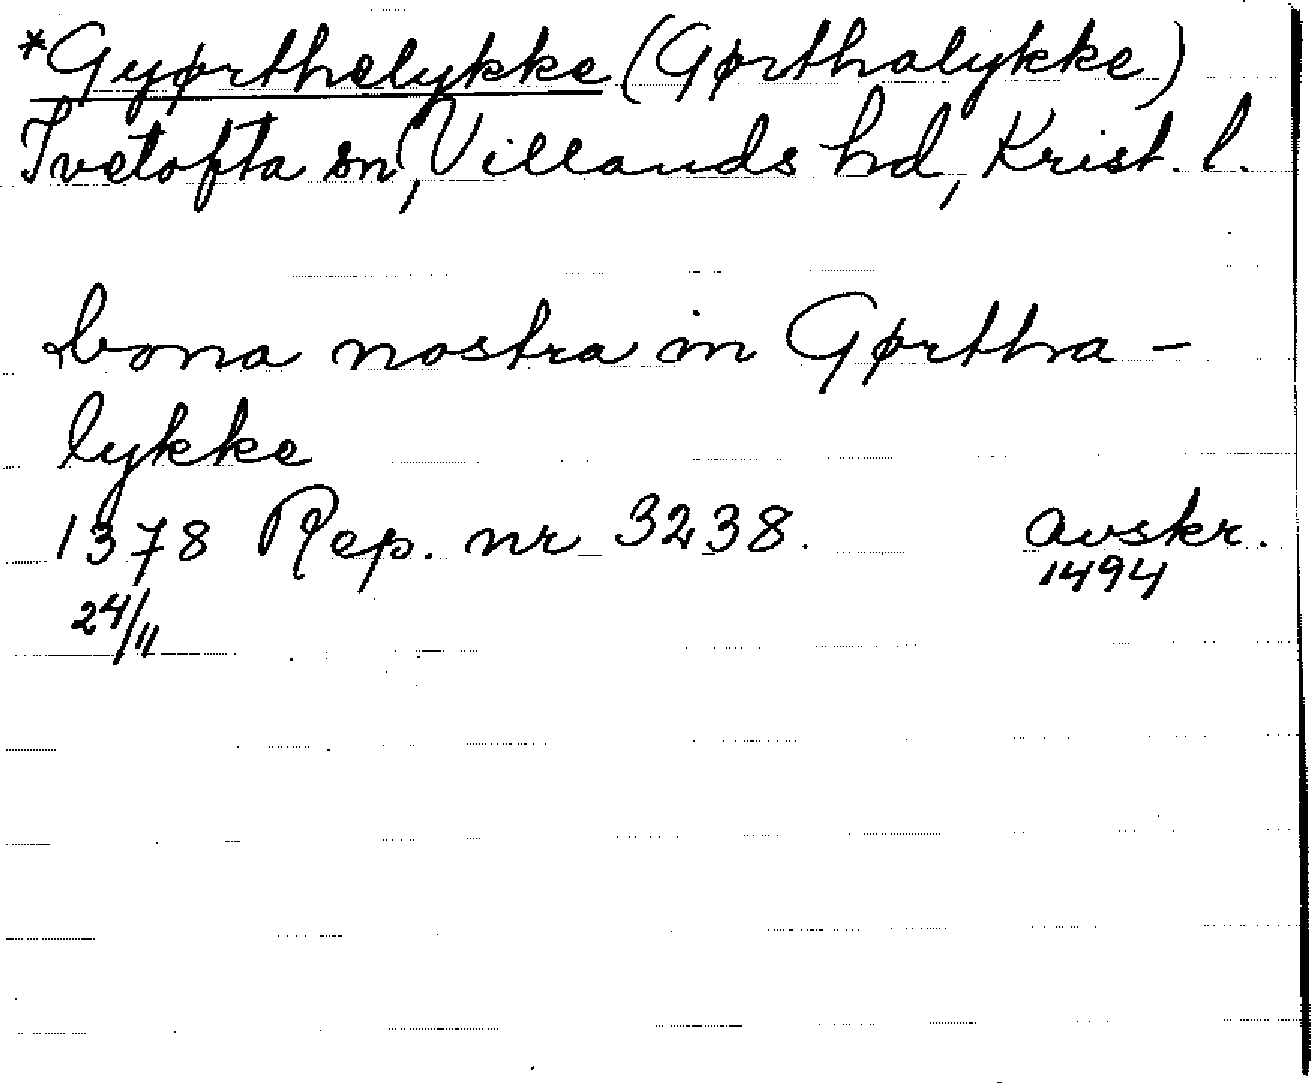 *Gyørthelykke (Gørthalykke)
Ivetofta sn, Villands hd, Krist. l.
bona nostra in Gørtha-
lykke
1378 Rep. nr 3238. avskr.
24/11 1494